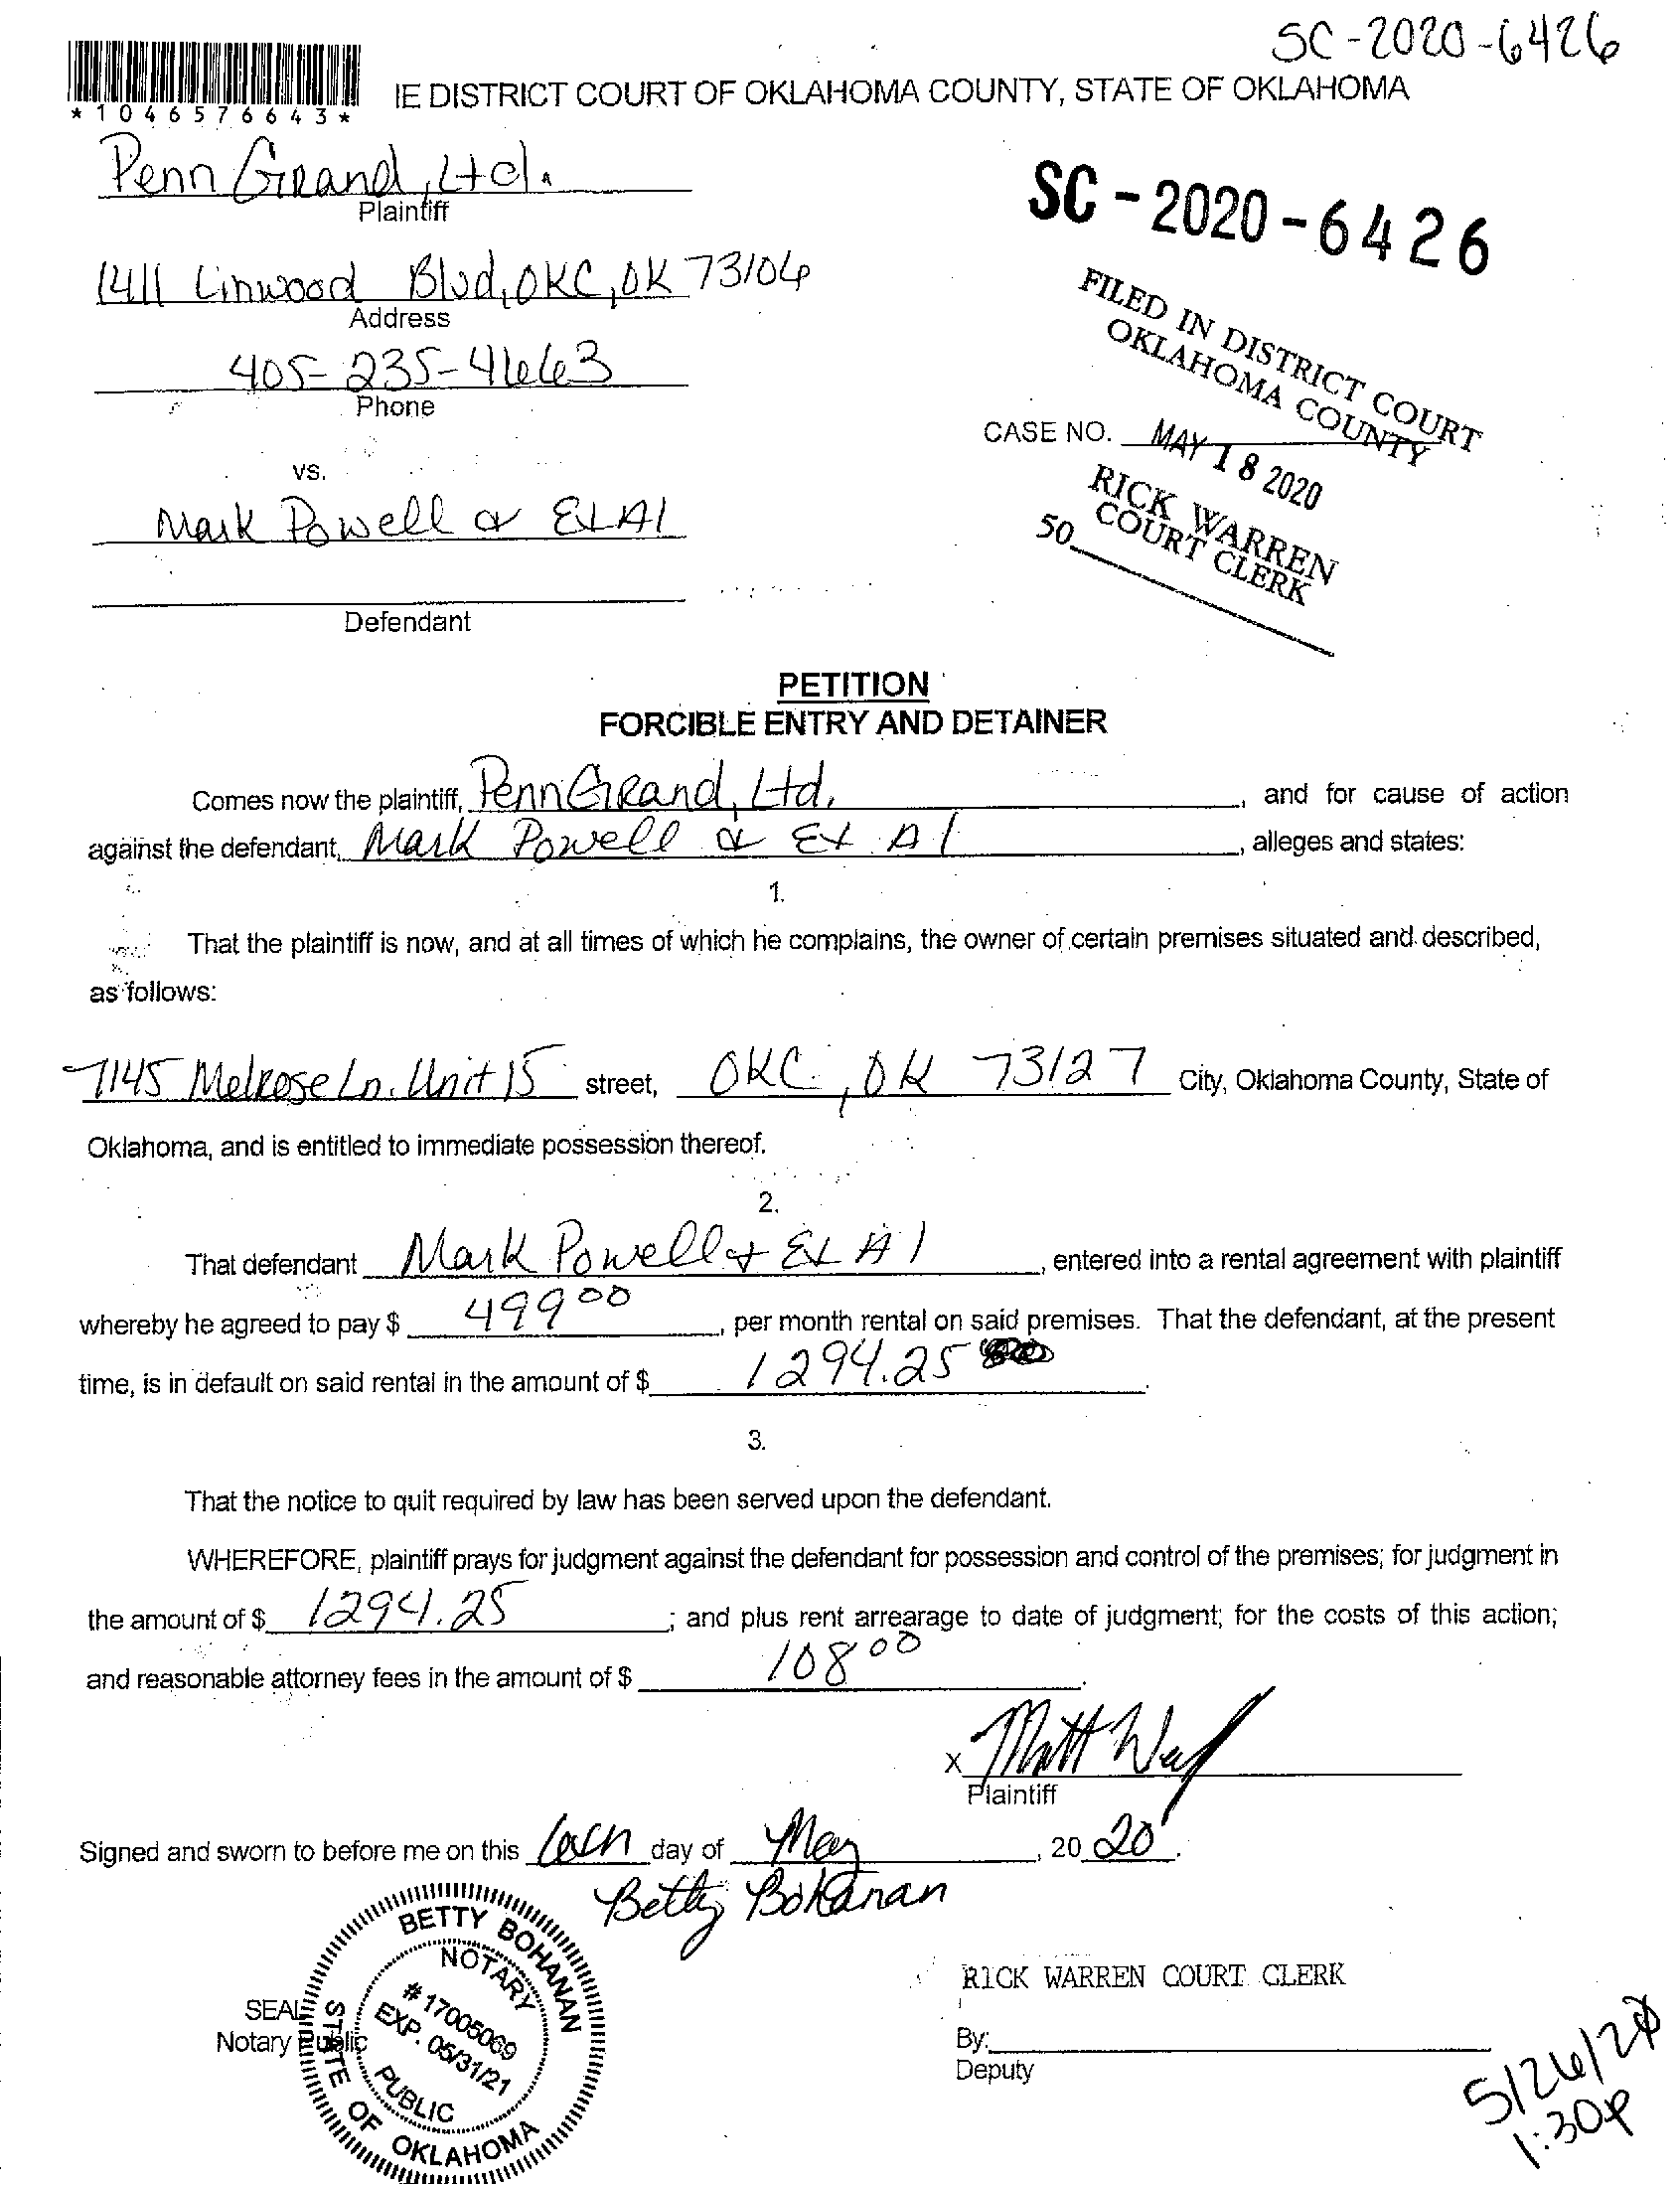 SC-2020-6426
*1046576643*
IE DISTRICT COURT OF OKLAHOMA COUNTY, STATE OF OKLAHOMA
Penn Grand, Ltd.
Plaintiff
SC-2020-6426
1411 Linwood Blvd, OKC, OK 73106
Address
FILED IN DISTRICT COURT
OKLAHOMA COUNTY
405-235-4663
Phone
CASE NO.
MAY 18 2020
vs.
RICK WARREN
COURT CLERK
50
Mark Powell & Et Al
Defendant
PETITION
FORCIBLE ENTRY AND DETAINER
Comes now the plaintiff, Penn Grand, Ltd, , and for cause of action
against the defendant, Mark Powell & Et Al , alleges and states:
1.
That the plaintiff is now, and at all times of which he complains, the owner of certain premises situated and described,
as follows:
7145 Melrose Ln. Unit 15 street, OKC, OK 73127 City, Oklahoma County, State of
Oklahoma, and is entitled to immediate possession thereof.
2.
That defendant Mark Powell & Et Al , entered into a rental agreement with plaintiff
whereby he agreed to pay $ 499 00 , per month rental on said premises. That the defendant, at the present
time, is in default on said rental in the amount of $ 1294.25 .
3.
That the notice to quit required by law has been served upon the defendant.
WHEREFORE, plaintiff prays for judgment against the defendant for possession and control of the premises; for judgment in
the amount of $ 1294.25 ; and plus rent arrearage to date of judgment; for the costs of this action;
and reasonable attorney fees in the amount of $ 108 00 .
X Matt
Plaintiff
Signed and sworn to before me on this day of May , 20 20 .
Betty Bohanan
BETTY BOHANAN
NOTARY
# 17005069
EXP. 05/31/21
PUBLIC
STATE OF OKLAHOMA
SEAL
Notary Public
RICK WARREN COURT CLERK
By:
Deputy
5/26/20
1:30p